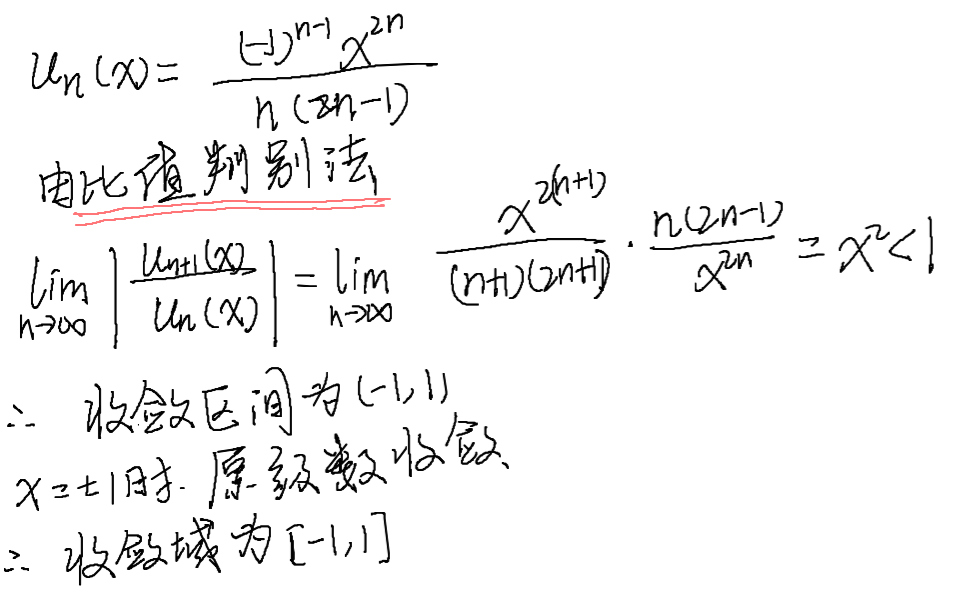 u_n(x) = \frac{(-1)^{n-1} x^{2n}}{n(2n-1)}
由比值判别法,
\lim_{n→∞} |\frac{u_{n+1}(x)}{u_n(x)}| = \lim_{n→∞} \frac{x^{2(n+1)}}{(n+1)(2n+1)} · \frac{n(2n-1)}{x^{2n}} = x^2 < 1
∴ 收敛区间为(-1,1)
x=±1时. 原级数收敛、
∴ 收敛域为[-1,1]